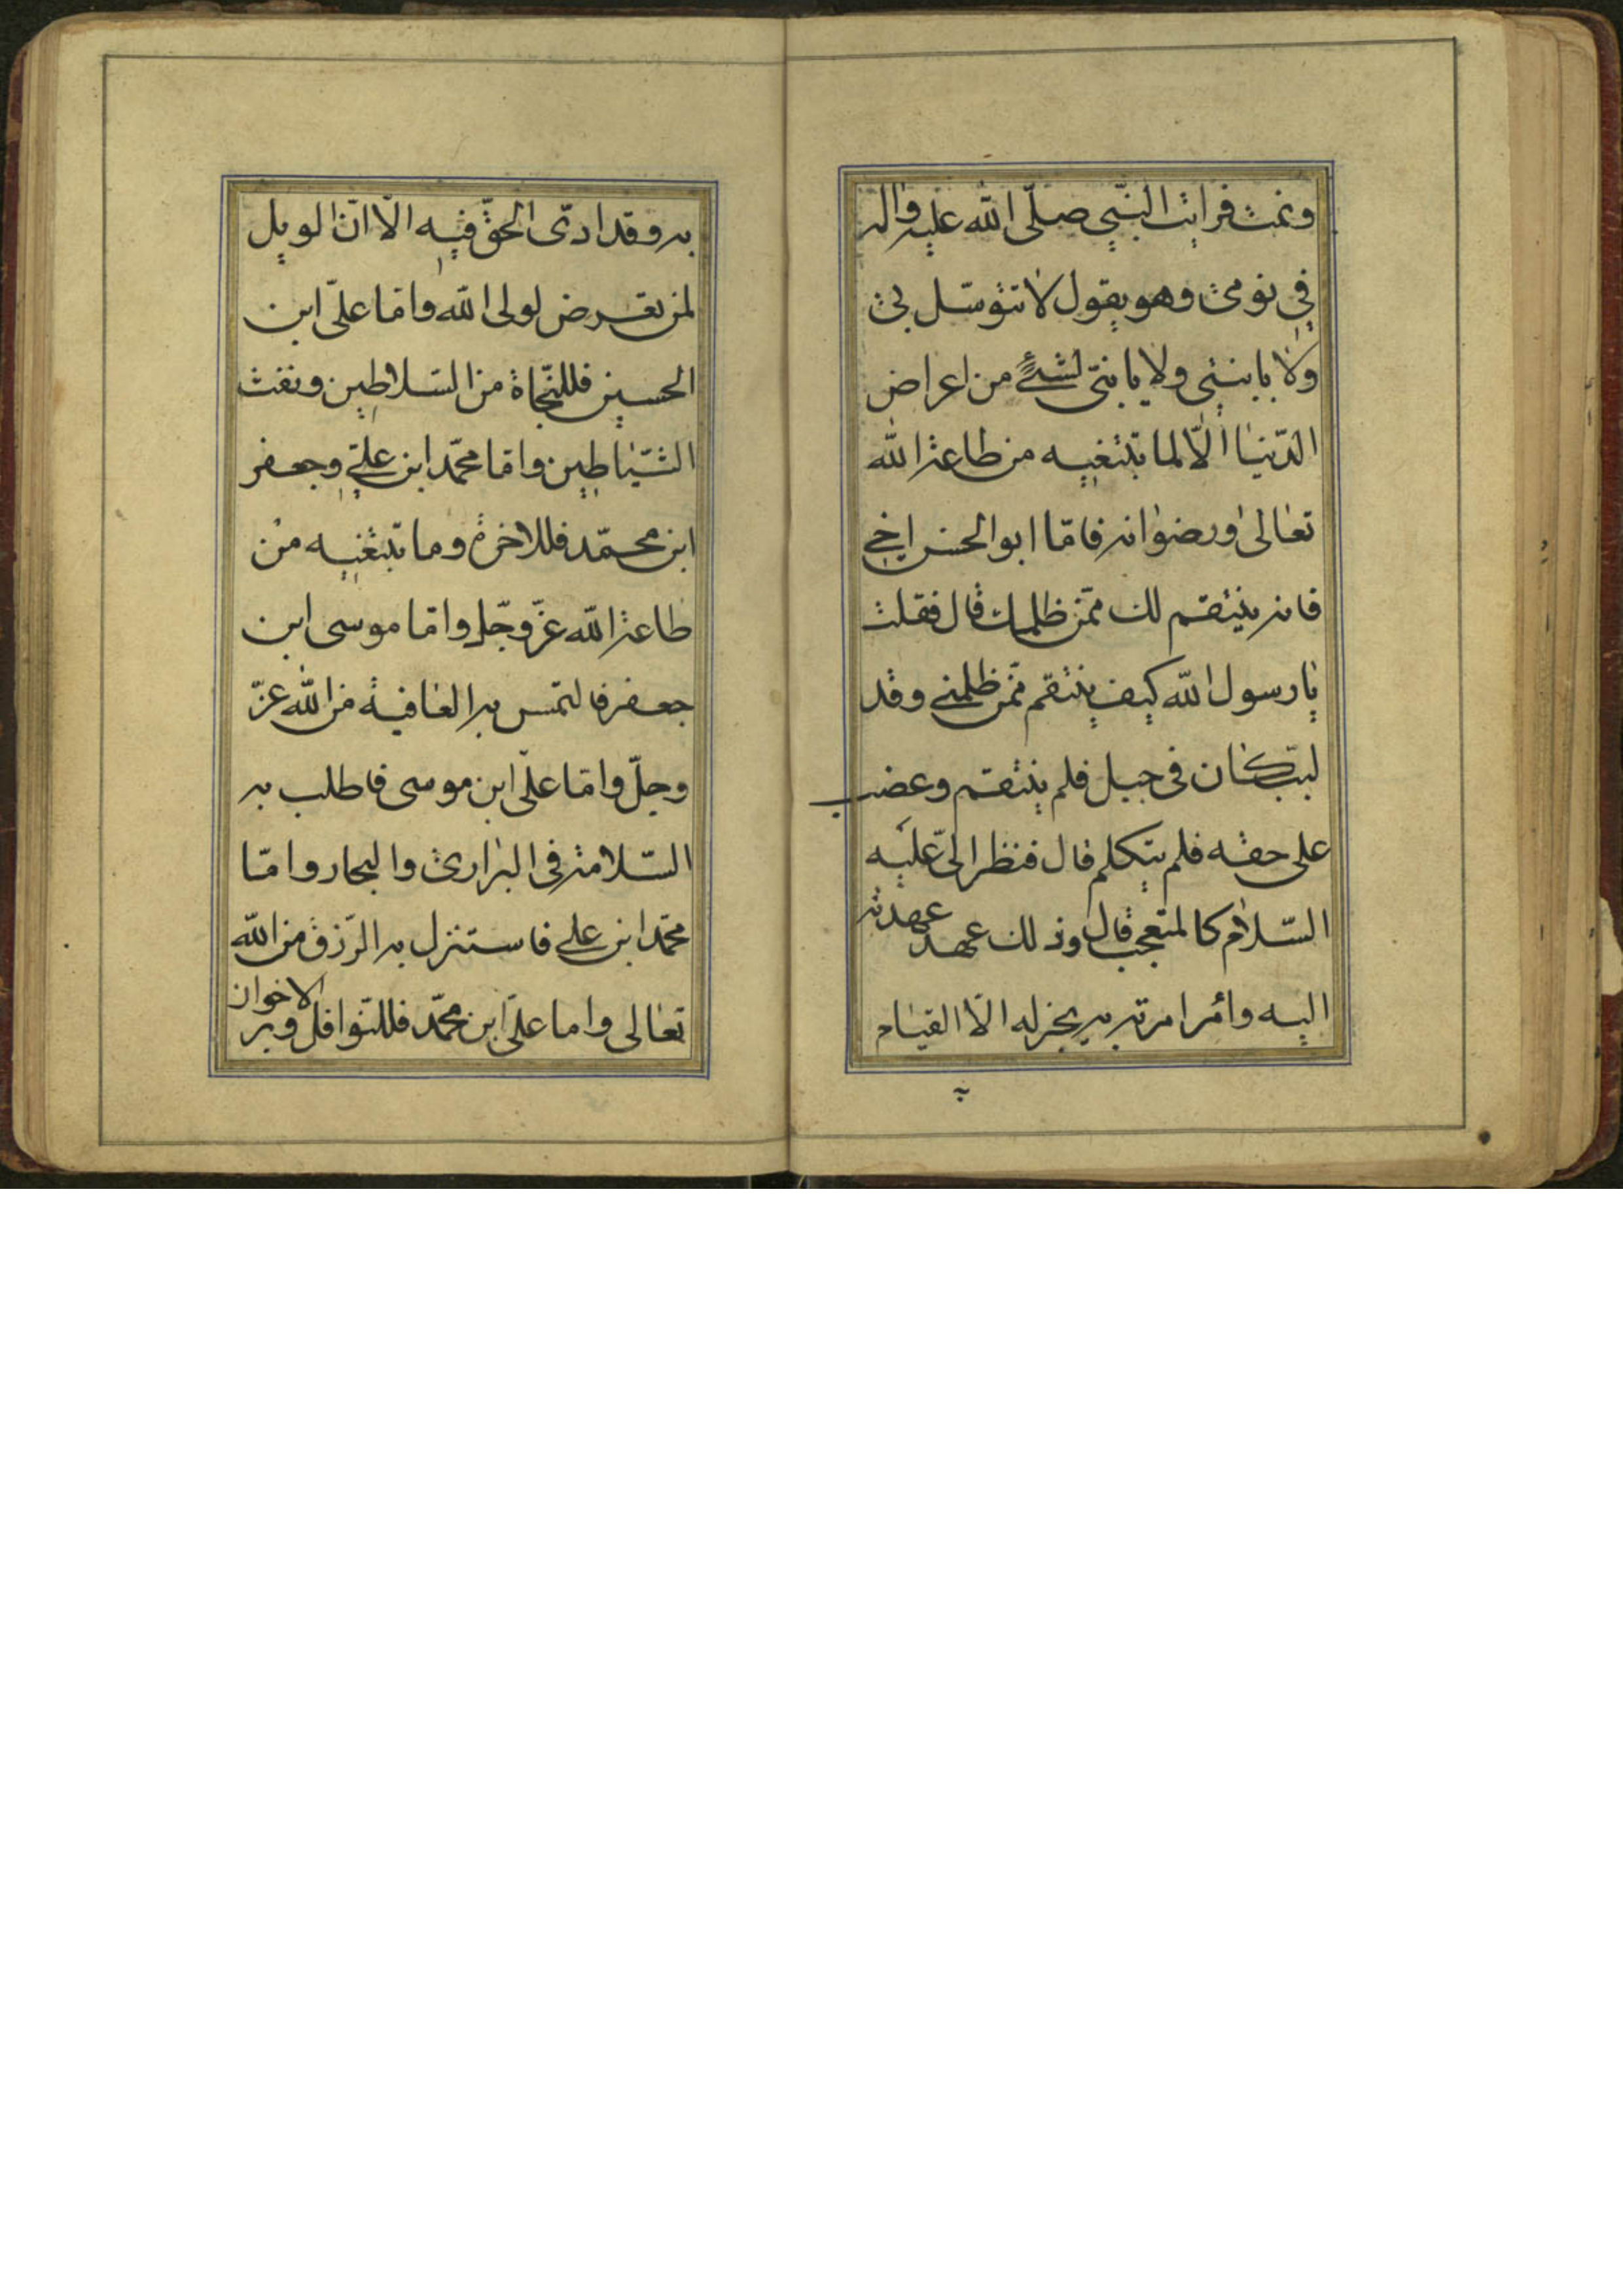 ونمت فرايت النبي صلّى الله عليه واله
في نومى وهو يقول لا تتوسّل بى
ولا بابنتي ولا يا بنىّ لشئ من اعراض
الدّنيا الّا لما تبتغيه من طاعة الله
تعالى ورضوانه فامّا ابوالحسن اخي
فانه ينتقم لك ممّن ظلمك قال فقلت
يا رسول الله كيف ينتقم ممّن ظلمني وقد
لبّب كان في حبل فلم ينتقم وغضب
على حقه فلم يتكلم قال فنظر الىّ عليه
السّلام كالمتعجب قال وذلك عهد عهدته
اليه وأمر امرته به يجز له الّا القيام
به وقد ادّى الحقّ فيه الّا انّ الويل
لمن تعرض لولى الله وامّا علىّ ابن
الحسين فللنّجاة من السّلاطين ونفث
الشّياطين وامّا محمّد ابن علىّ وجعفر
ابن محمّد فللاخرة وما تبتغيه من
طاعة الله عزّ وجلّ وامّا موسى ابن
جعفر فالتمس به العافية من الله عزّ
وجلّ وامّا علىّ ابن موسى فاطلب به
السّلامة في البرارى والبحار وامّا
محمّد ابن على فاستنزل به الرّزق من الله
تعالى واما علىّ ابن محمّد فللنّوافل وبر الاخوان